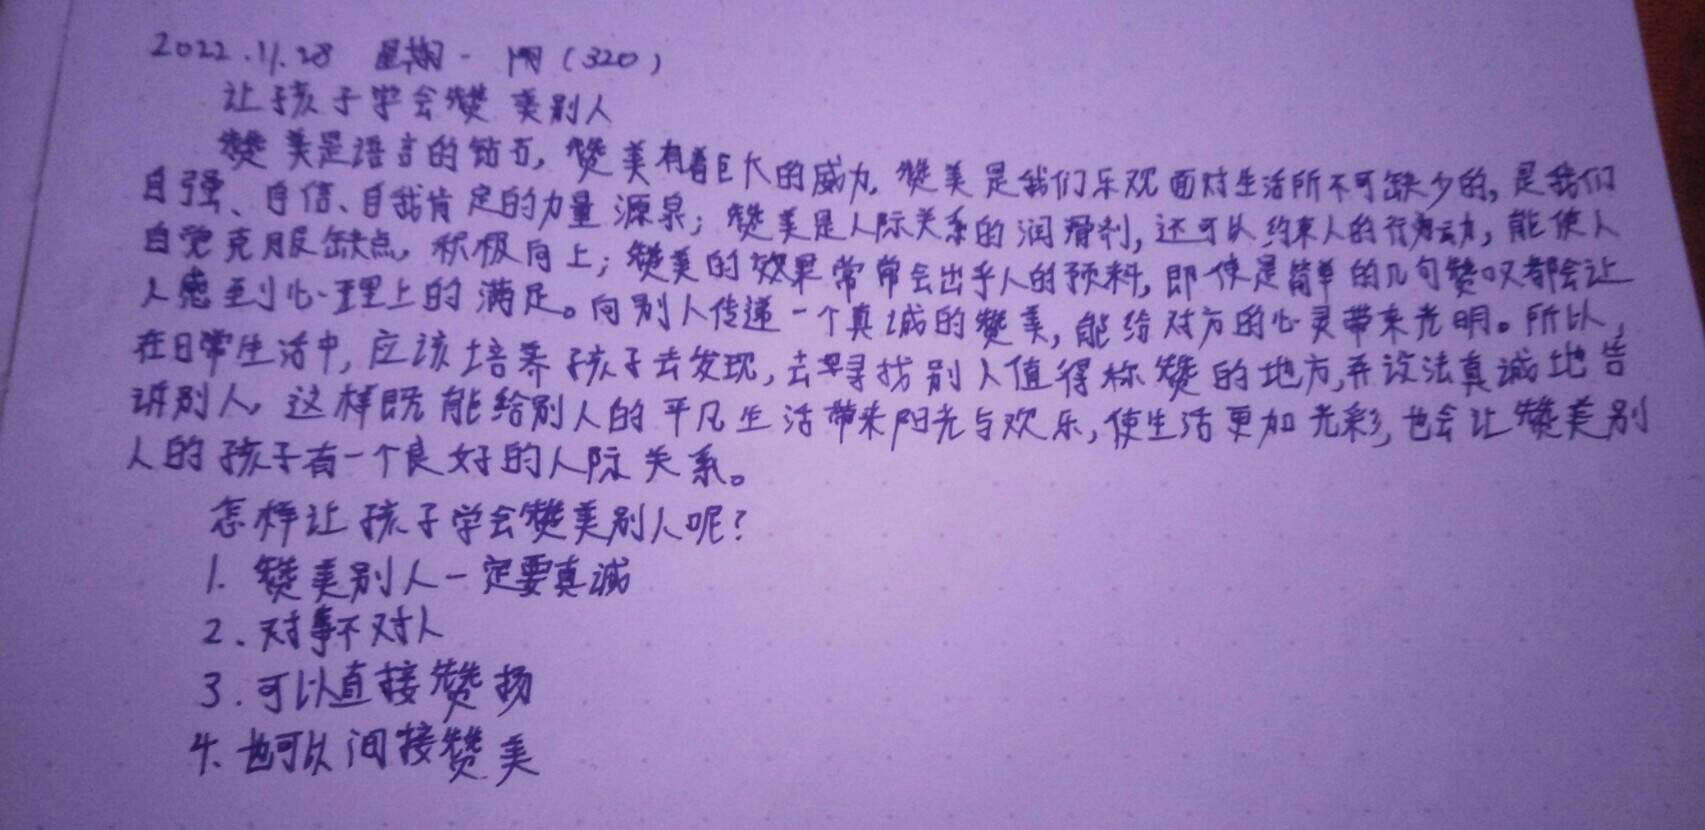 2022.11.28 星期一 阴（320）
让孩子学会赞美别人
赞美是语言的钻石，赞美有着巨大的威力。赞美是我们乐观面对生活所不可缺少的，是我们
自强、自信、自我肯定的力量源泉；赞美是人际关系的润滑剂，还可以约束人的行动，能使人
自觉克服缺点，积极向上；赞美的效果常常会出乎人的预料，即使是简单的几句赞叹都会让
人感到心理上的满足。向别人传递一个真诚的赞美，能给对方的心灵带来光明。所以，
在日常生活中，应该培养孩子去发现，去寻找别人值得称赞的地方，并设法真诚地告
诉别人。这样既能给别人的平凡生活带来阳光与欢乐，使生活更加光彩，也会让赞美别
人的孩子有一个良好的人际关系。
怎样让孩子学会赞美别人呢？
1. 赞美别人一定要真诚
2. 对事不对人
3. 可以直接赞扬
4. 也可以间接赞美